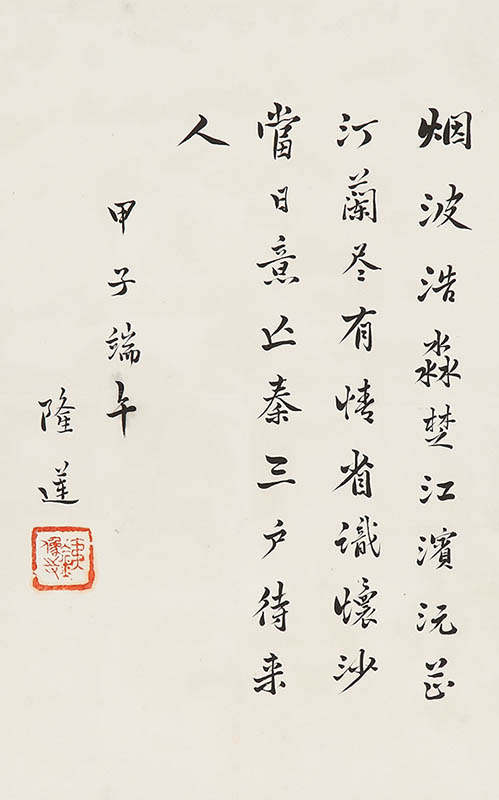 烟波浩淼楚江濱沅芷
汀蘭尽有情省識懷沙
當日意亡秦三户待来
人
甲子端午
隆蓮